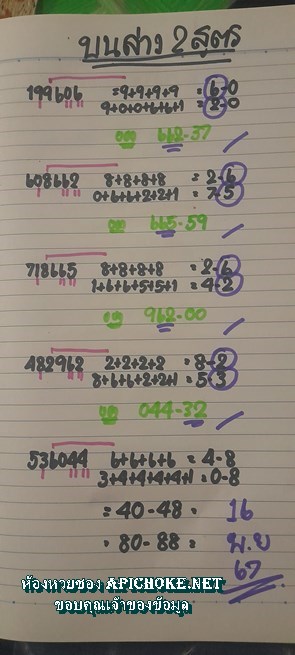 บนล่าง 2 สูตร
199606 =9+9+9+9 = 6-0
9+0+0+6+6+1 = 2-0
ออก 662-37
608662 8+8+8+8 = 2-6
0+6+6+2+2+1 = 7-5
ออก 665-59
718665 8+8+8+8 = 2-6
1+6+6+5+5+1 = 4-2
ออก 962-00
482962 2+2+2+2 = 8-2
8+6+6+2+2+1 = 5-3
ออก 044-32
536044 6+6+6+6 = 4-8
3+4+4+4+4+1 = 0-8
= 40-48 = 16
= 80-88 = พ.ย
67
ห้องหวยซอง APICHOKE.NET
ขอบคุณเจ้าของข้อมูล